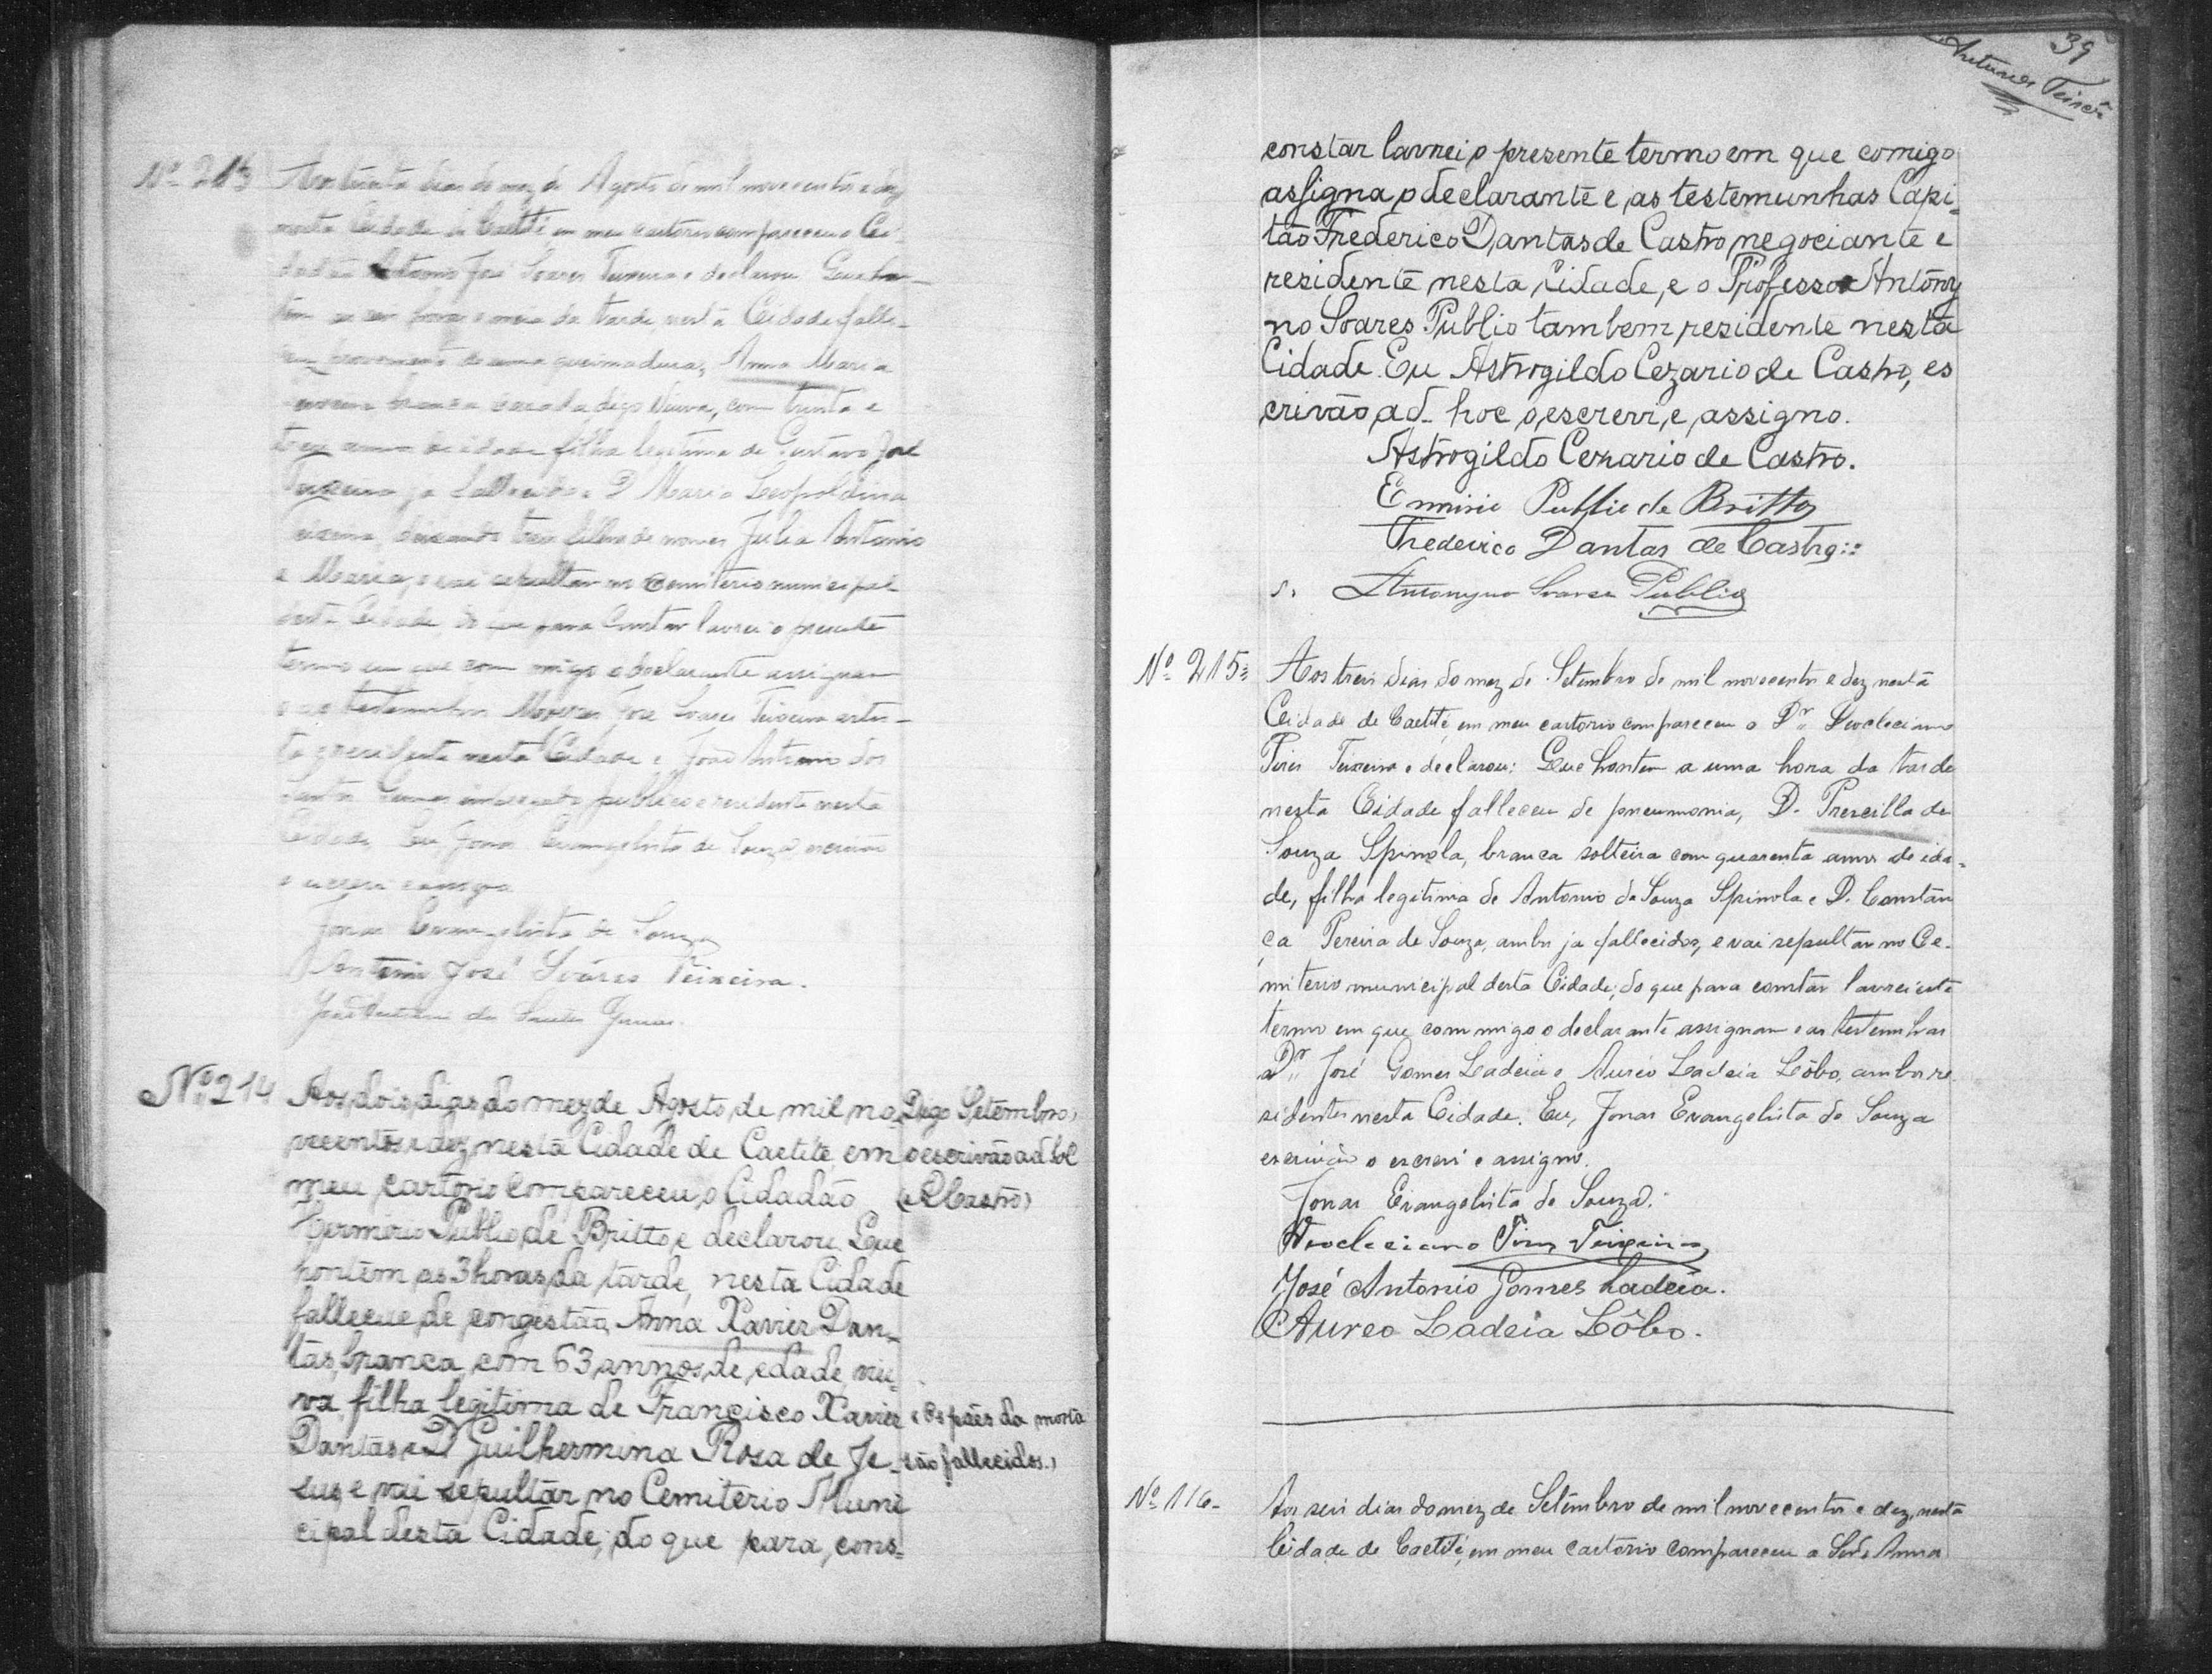 Nº 213 Aos trinta dias do mez de Agosto de mil novecentos e dez
nesta Cidade de Caetité em meu cartorio compareceu o Ci-
dadão Antonio José Soares Teixeira e declarou Que hon-
tem as seis horas e meia da tarde, nesta Cidade falle-
ceu proveniente de uma queimadura, Anna Maria
branca casada digo Viuva, com trinta e
tres annos de idade filha legitima de Gustavo José
Teixeira ja fallecido e D Maria Leopoldina
Teixeira, deixando tres filhos de nomes Julia Antonio
e Maria, e vai sepultar no Cemiterio municipal
desta Cidade, do que para constar lavrei o presente
termo em que com migo o declarante assignam
e as testemunhas Moyses José Soares Teixeira artis-
ta e residente nesta Cidade e João Antonio dos
Santos empregado publico e residente nesta
Cidade Eu Jonas Evangelista de Souza, escrivão
o escrevi e assigno
Jonas Evangelista de Souza
Antonio José Soares Teixeira.
João Antonio dos Santos
Nº 214 Aos dois dias do mez de Agosto de mil no- Digo Setembro,
vecentos e dez nesta Cidade de Caetité, em o escrivão ad hoc
meu cartorio compareceu o Cidadão (A Castro)
Herminio Publio de Britto e declarou. Que
hontem as 3 horas da tarde, nesta Cidade
falleceu de congestão, Anna Xavier Dan-
tas, branca, com 63 annos de edade, viu-
va, filha legitima de Francisco Xavier (Os paes da morta
Dantas e D Guilhermina Rosa de Je- são fallecidos.)
sus, e vai sepultar no Cemiterio Muni
cipal desta Cidade, do que para, cons-
39
Antunes Teixrª
constar lavrei o presente termo em que comigo
assigna o declarante e as testemunhas Capi-
tão Frederico Dantas de Castro negociante e
residente nesta Cidade, e o Professor Antony
no Soares Publio tambem residente nesta
Cidade. Eu Astrogildo Cezario de Castro, es
crivão ad-hoc o escrevi, e assigno.
Astrogildo Cezario de Castro.
Erminio Publio de Britto
Frederico Dantas de Castro::
Antonyno Soares Publio
Nº 215 = Aos tres dias do mez de Setembro de mil novecentos e dez nesta
Cidade de Caetité, em meu cartorio compareceu o Dr. Deocleciano
Pires Teixeira e declarou: Que hontem a uma hora da tarde
nesta Cidade falleceu de pneumonia, D. Prescilla de
Souza Spinola, branca solteira com quarenta annos de ida-
de, filha legitima de Antonio de Souza Spinola e D. Constan
ça Pereira de Souza, ambos ja fallecidos, e vai sepultar no Ce-
miterio municipal desta Cidade; do que para constar lavrei este
termo em que com migo o declarante assignam e as testemunhas
Dr. José Gomes Ladeia e Aureo Ladeia Lôbo, ambos re-
sidentes nesta Cidade. Eu, Jonas Evangelista de Souza
escrivão o escrevi e assigno.
Jonas Evangelista de Souza.
Deocleciano Pires Teixeira
José Antonio Gomes Ladeia.
Aureo Ladeia Lôbo.
Nº 116- Aos seis dias do mez de Setembro de mil novecentos e dez, nesta
Cidade de Caetité, em meu cartorio compareceu a Snra Anna